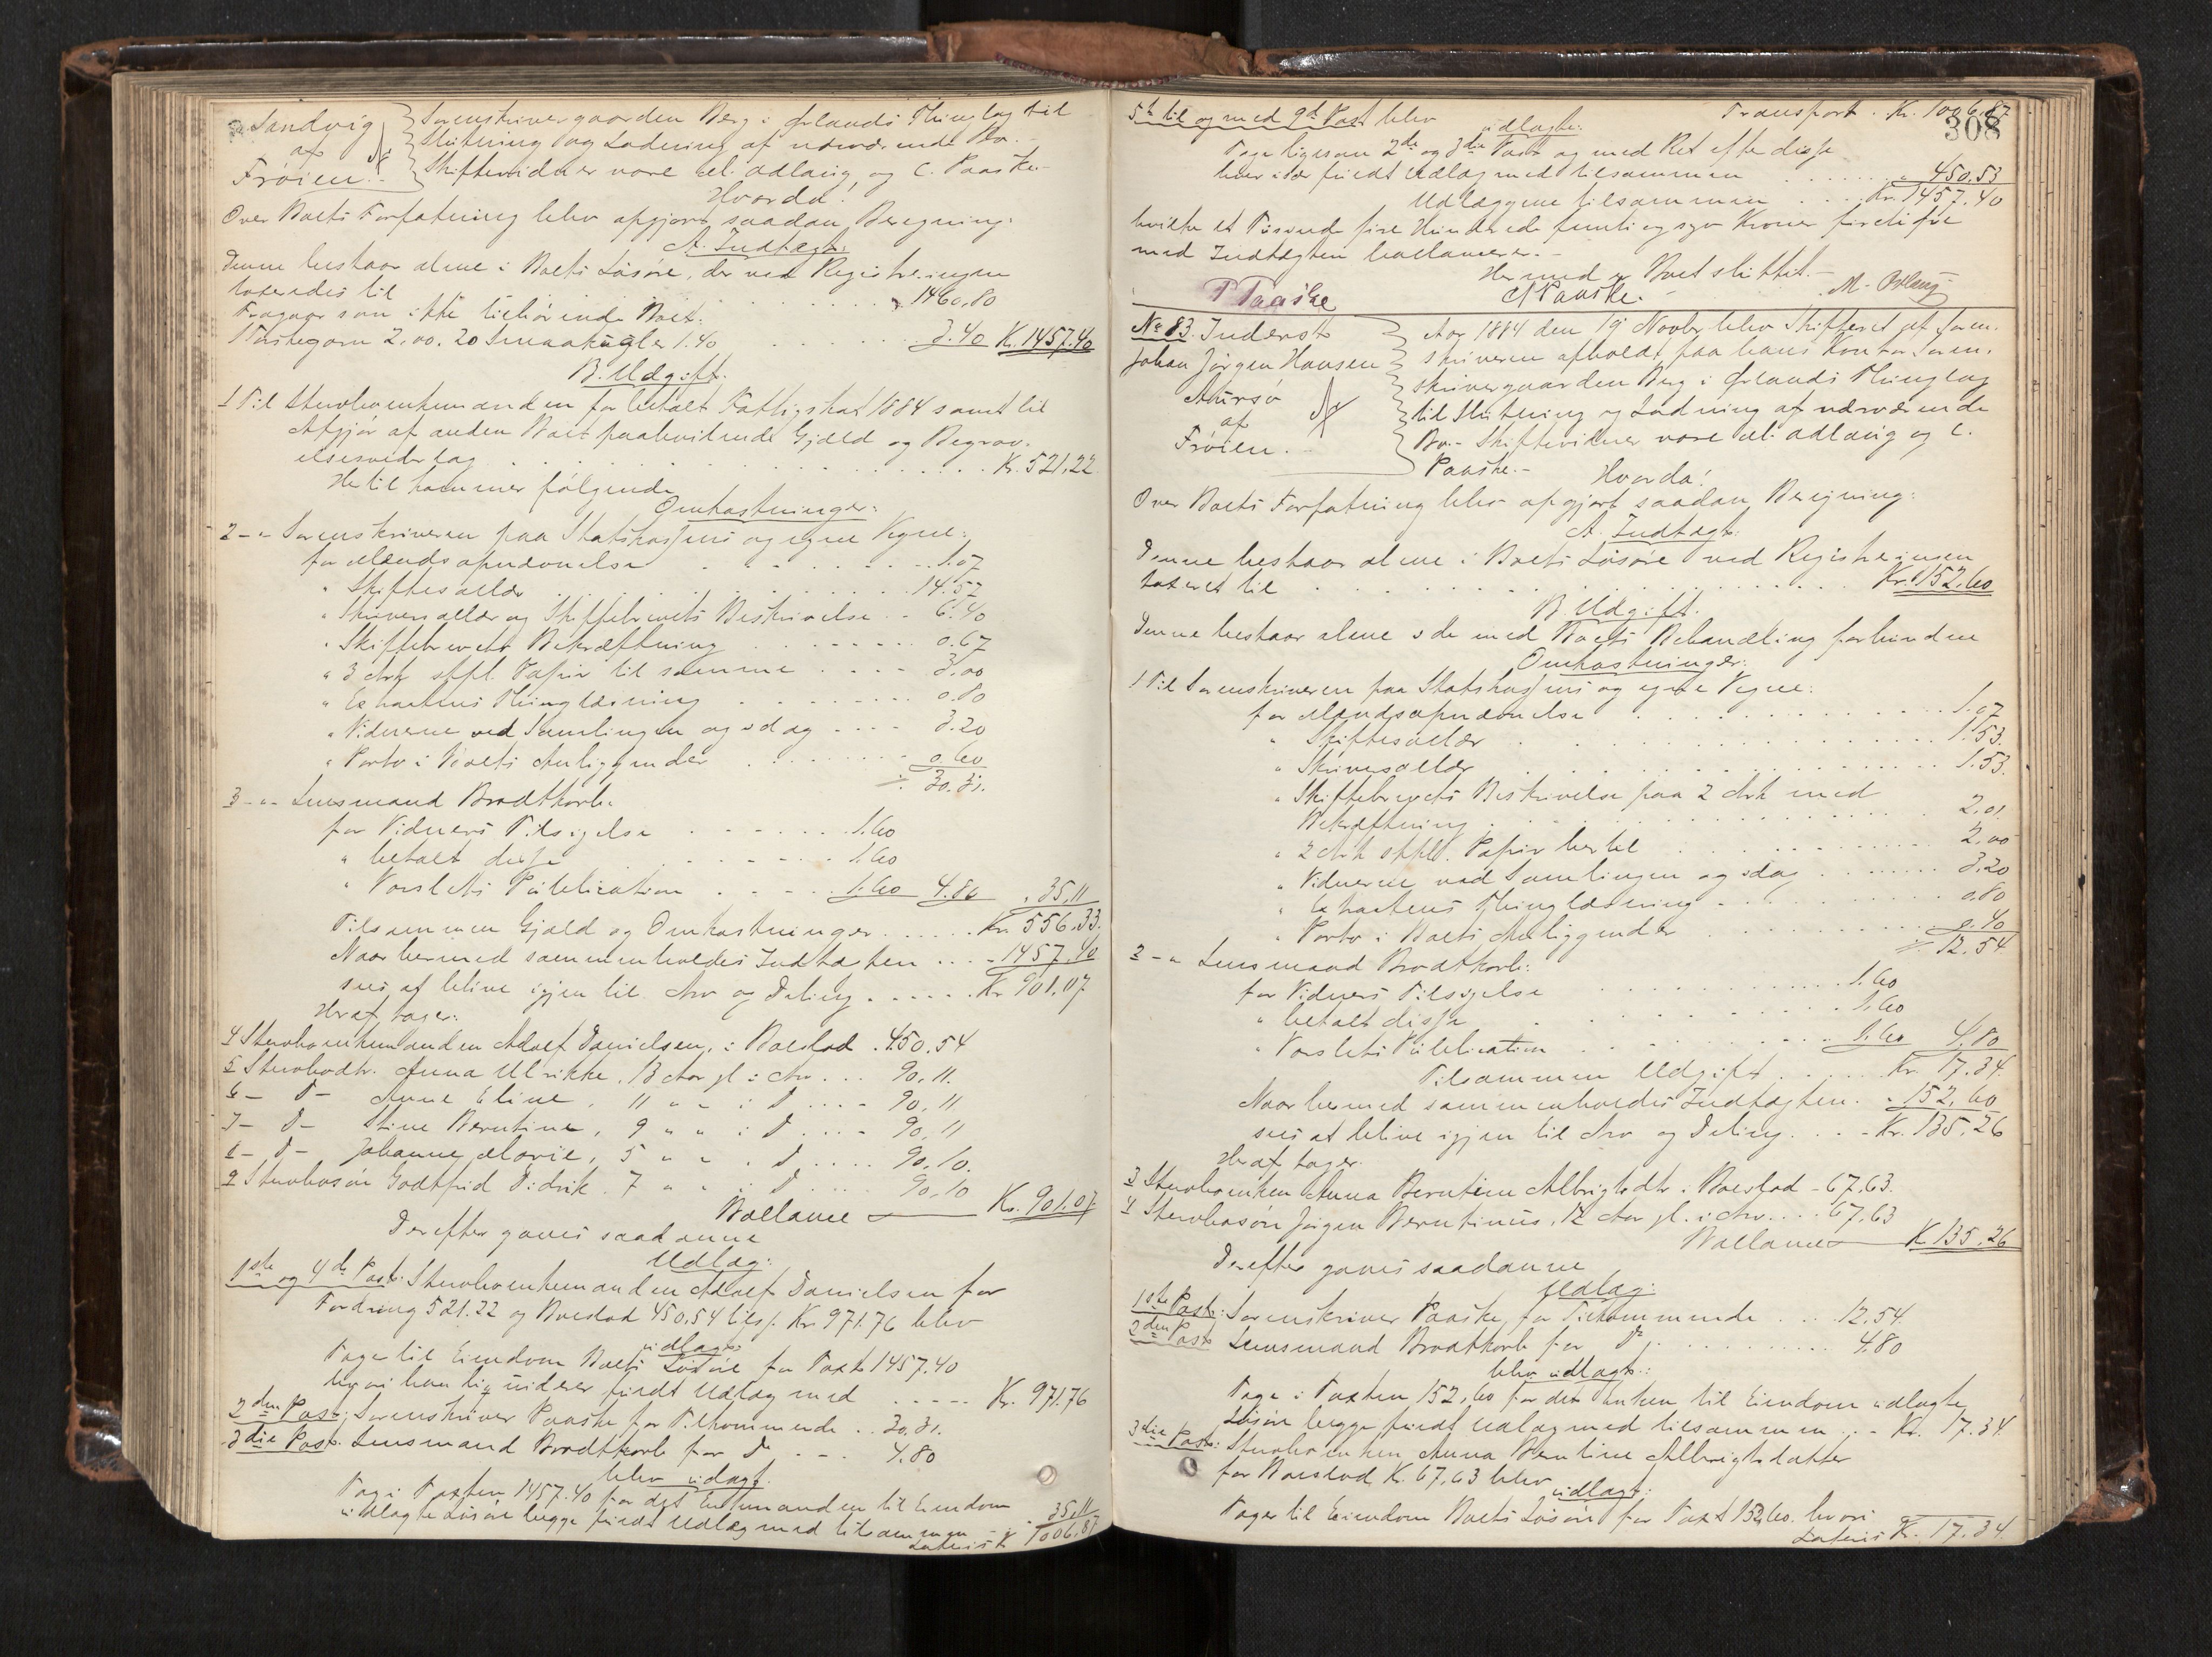 Sandvig
af
Frøien.-
Sorenskrivergaarden Berg i Ørlands Thinglag til
Slutning og Lodning af nærværende Bo.
Skiftevidner vare M. Ødlaug og C. Paaske.-
Hvorda!
Over Boets Forfatning blev opgjort saadan Beregning:
A. Indtægt:
Denne bestaar alene i Boets Løsøre, der ved Registreringen
taxeredes til 1460.80
Fragaar som ikke tilhørende Boet:
1 Torskegarn 2.00. 20 Smaakugler 1.40 3.40 Kr. 1457.40
B. Udgift.
1 Til Sterboenkemanden for betalt Fattigskat 1884 samt til
Afgjør af anden Boet paahvilende Gjæld og Begrav-
elsesvederlag Kr. 521.22
Hertil kommer følgende
Omkostninger:
2 - " Sorenskriveren paa Statskassens og egne Vegne:
for Mændsopnævnelse 1.07
" Skiftesallær 14.57
" Skriversallær og Skiftebrevets Beskrivelse 6.40
" Skiftebrevets Bekræftning 0.67
" 3 Ark stpl. Papir til samme 3.00
" Extractens Thinglæsning 0.80
" Vidnerne ved Samlingen og idag 3.20
" Porto i Boets Anliggender 0.60
30.31.
3 - " Lensmand Brodtkorb:
for Vidners Tilsigelse 1.60
" betalt disse 1.60
" Varslets Publication 1.60 4.80 35.11
Tilsammen Gjæld og Omkostninger Kr. 556.33.
Naar hermed sammenholdes Indtægten 1457.40
sees at blive igjen til Arv og Deling Kr. 901.07
Heraf tager:
4 Sterboenkemanden Adolf Danielsen, i Boeslod 450.54
5 Sterbodtr. Anna Ulrikke, 13 Aar gl. i Arv 90.11.
6 - D - Anne Eline, 11 " " i D 90.11
7 - D - Stine Berntine, 9 " " i D 90.11
8 - D - Johanne Marie, 5 " " i D 90.10.
9 Sterbosøn Godtfrid Didrik, 7 " " i D 90.10
Ballance Kr. 901.07
Derefter gaves saadanne
Udlæg:
1ste og 4de Post: Sterboenkemanden Adolf Danielsen for
Fordring 521.22 og Boeslod 450.54 tils. Kr. 971.76 blev
udlagt:
Tager til Eiendom Boets Løsøre for Taxt 1457.40
hvori han ligeniderer fuldt Udlæg med Kr. 971.76
2den Post: Sorenskriver Paaske for Tilkommende 30.31.
3die Post: Lensmand Brodtkorb for D 4.80
blev udlagt:
Tage i Taxten 1457.40 for det Enkemanden til Eiendom
udlagte Løsøre begge fuldt Udlæg med tilsammen 35.11
Lateris Kr. 1006.87
308
5te til og med 9de Post blev Transport Kr. 1006.87
udlagt:
Tage ligesom 2de og 3die Post og med Ret efter disse
hver især fuldt Udlæg med tilsammen 450.53
Udlæggene tilsammen Kr. 1457.40
hvilke et Tusinde fire Hundrede femti og syv Kroner fireti Øre
med Indtægten ballancerer.-
Hermed er Boet sluttet.-
P Paaske C Paaske.
No 83. Inderst
Johan Jørgen Hansen
Aursø
af
Frøien.-
Aar 1884 den 19 Novbr. blev Skifteret af Soren-
skriveren afholdt paa hans Kontor Soren-
skrivergaarden Berg i Ørlands Thinglag
til Slutning og Lodning af nærværende
Bo.- Skiftevidner vare M. Ødlaug og C.
Paaske.-
Hvorda!
Over Boets Forfatning blev opgjort saadan Beregning:
A. Indtægt:
Denne bestaar alene i Boets Løsøre ved Registreringen
taxeret til Kr. 152.60
B. Udgift.
Denne bestaar alene i de med Boets Behandling forbundne
Omkostninger:
1 Til Sorenskriveren paa Statskassens og egne Vegne:
for Mændsopnævnelse 1.07
" Skiftesallær 1.53.
" Skriversallær 1.53.
" Skiftebrevets Beskrivelse paa 2 Ark med
Bekræftning 2.01.
" 2 Ark stpld. Papir hertil 2.00
" Vidnerne ved Samlingen og idag 3.20
" Extractens Thinglæsning 0.80
" Porto i Boets Anliggender 0.40
12.54
2 - " Lensmand Brodtkorb:
for Vidners Tilsigelse 1.60
" betalt disse 1.60
" Varslets Publication 1.60 4.80
Tilsammen Udgift Kr. 17.34.
Naar hermed sammenholdes Indtægten 152.60
sees at blive igjen til Arv og Deling Kr. 135.26
Heraf tager:
3 Sterboenken Anna Berntine Albrigtsdtr. i Boeslod 67.63.
4 Sterbosøn Jørgen Berntinus, 12 Aar gl. i Arv 67.63
Ballance K. 135.26
Derefter gaves saadanne
Udlæg:
1ste Post: Sorenskriver Paaske, for Tilkommende 12.54.
2den Post: Lensmand Brodtkorb for Do 4.80
blev udlagt:
Tage i Taxten 152.60 for det Enken til Eiendom udlagte
Løsøre begge fuldt Udlæg med tilsammen Kr. 17.34.
3die Post: Sterboenken Anna Berntine Albrigtsdatter
for Boeslod K. 67.63 blev
udlagt:
Tager til Eiendom Boets Løsøre for Taxt 152.60. hvori
Lateris Kr. 17.34.